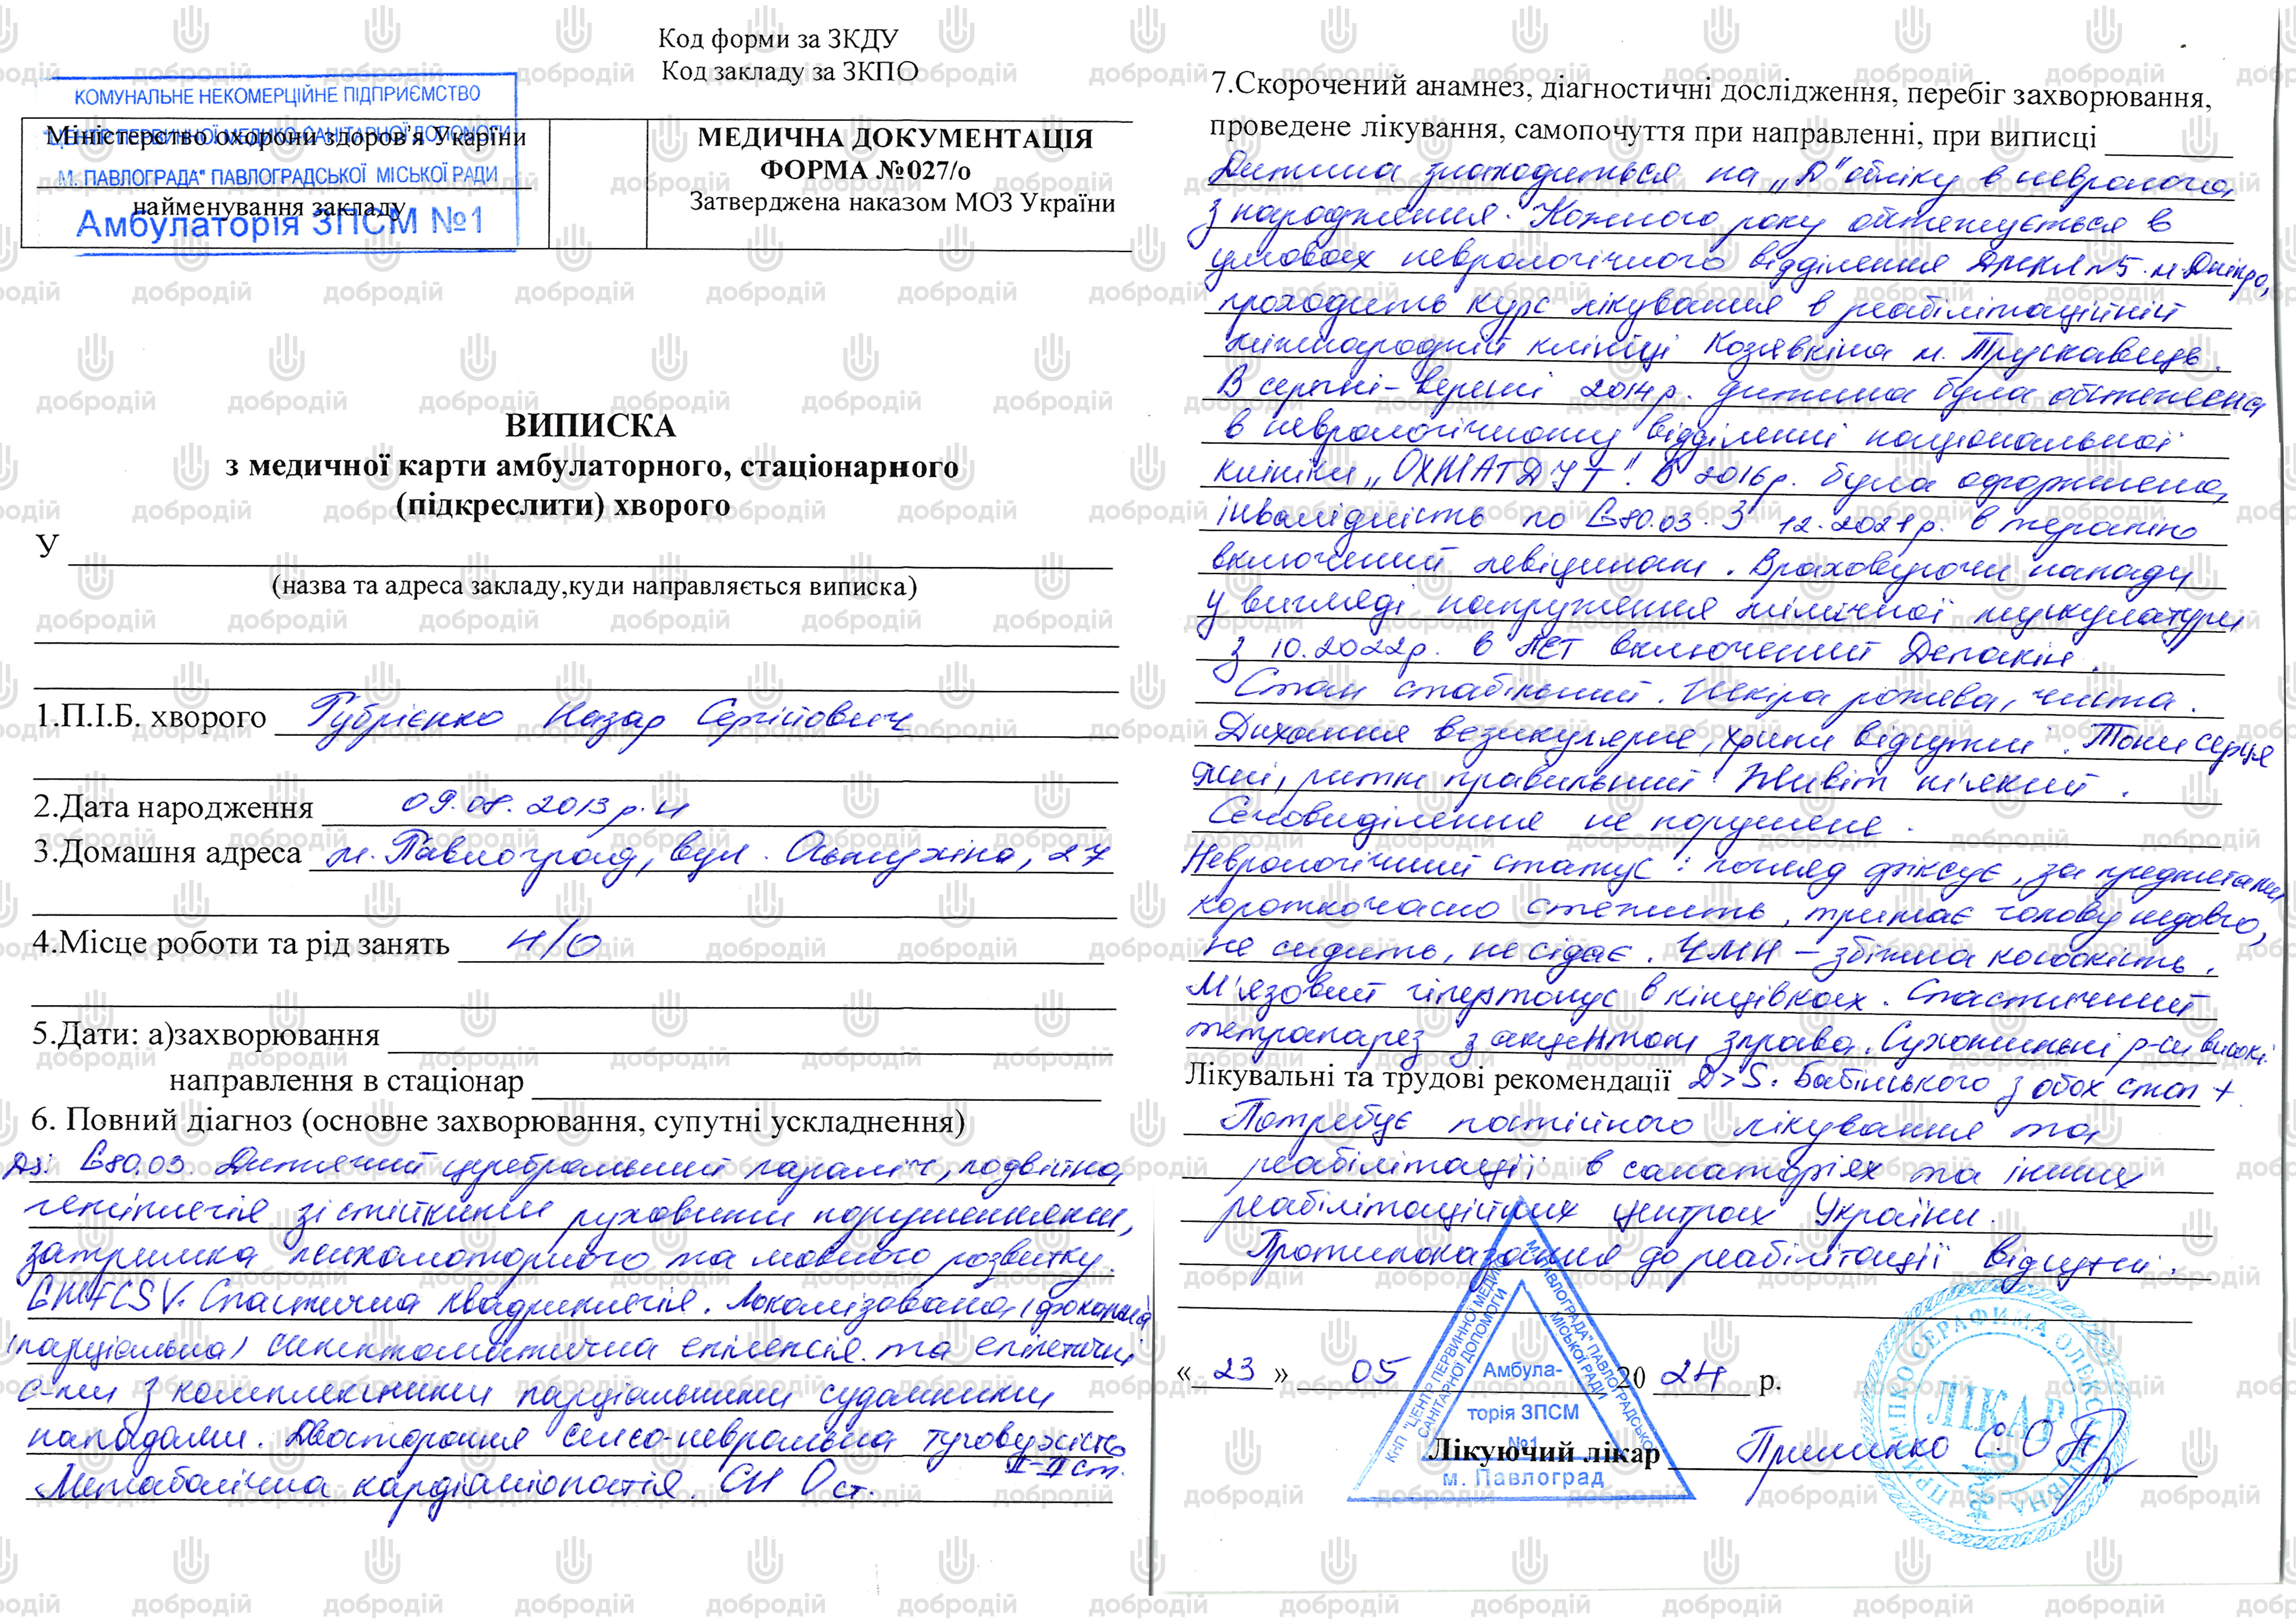 Код форми за ЗКДУ
Код закладу за ЗКПО
КОМУНАЛЬНЕ НЕКОМЕРЦІЙНЕ ПІДПРИЄМСТВО
"ЦЕНТР ПЕРВИННОЇ МЕДИКО-САНІТАРНОЇ ДОПОМОГИ
Міністерство охорони здоров'я Укаріни
М. ПАВЛОГРАДА" ПАВЛОГРАДСЬКОЇ МІСЬКОЇ РАДИ
найменування закладу
Амбулаторія ЗПСМ №1
МЕДИЧНА ДОКУМЕНТАЦІЯ
ФОРМА №027/о
Затверджена наказом МОЗ України
ВИПИСКА
з медичної карти амбулаторного, стаціонарного
(підкреслити) хворого
У
(назва та адреса закладу,куди направляється виписка)
1.П.І.Б. хворого Рубрієнко Назар Сергійович
2.Дата народження 09.08.2013 р.н
3.Домашня адреса м. Павлоград, вул. 27
4.Місце роботи та рід занять н/о
5.Дати: а)захворювання
направлення в стаціонар
6. Повний діагноз (основне захворювання, супутні ускладнення)
Дз: G80.03. Дитячий церебральний параліч, подвійна
геміплегія зі стійкими руховими порушеннями,
затримка психомоторного та мовного розвитку.
GMFCS V. Спастична квадриплегія. Локалізована (фокальна)
(парціальна) симптоматична епілепсія та епілептичні
с-ми з комплексними парціальними судомними
нападами. Двостороння сенсо-невральна туговухість
I-II ст.
Метаболічна кардіоміопатія. СН 0 ст.
7.Скорочений анамнез, діагностичні дослідження, перебіг захворювання,
проведене лікування, самопочуття при направленні, при виписці
Дитина знаходиться на „Д" обліку в невролога
з народження. Кожного року обстежується в
умовах неврологічного відділення ДМКЛ №5 м. Дніпро,
проходить курс лікування в реабілітаційній
міжнародній клініці Козявкіна м. Трускавець.
В серпні-вересні 2014 р. дитина була обстежена
в неврологічному відділенні національної
клініки „ОХМАТДИТ". В 2016 р. була оформлена
інвалідність по G80.03. З 12.2021 р. в терапію
включений левіцитам. Враховуючи напади
у вигляді напруження мімічної мускулатури
з 10.2022 р. в АЕТ включений Депакін.
Стан стабільний. Шкіра рожева, чиста.
Дихання везикулярне, хрипи відсутні. Тони серця
ясні, ритм правильний. Живіт м'який.
Сечовиділення не порушене.
Неврологічний статус: погляд фіксує, за предметами
короткочасно стежить, тримає голову недовго,
не сидить, не сідає. ЧМН – збіжна косоокість.
М'язовий гіпертонус в кінцівках. Спастичний
тетрапарез з акцентом зправа. Сухожильні р-си високі
Лікувальні та трудові рекомендації D>S. Бабінського з обох стоп +.
Потребує постійного лікування та
реабілітації в санаторіях та інших
реабілітаційних центрах України.
Протипоказання до реабілітації відсутні.
« 23 » 05 20 24 р.
Лікуючий лікар Примико С.О
КНП "ЦЕНТР ПЕРВИННОЇ МЕДИКО-
САНІТАРНОЇ ДОПОМОГИ
М. ПАВЛОГРАДА" ПАВЛОГРАДСЬКОЇ
МІСЬКОЇ РАДИ
Амбула-
торія ЗПСМ
№1
м. Павлоград
СЕРАФИМА ОЛЕКСАНДРІВНА
ЛІКАР
добродій